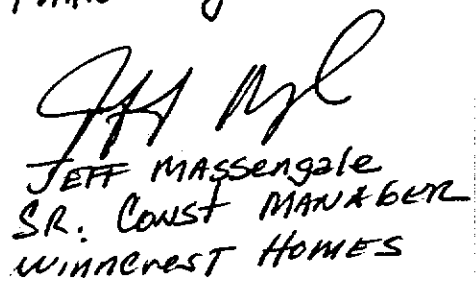 JEFF MASSENGALE
SR. CONST MANAGER
WINNCREST HOMES